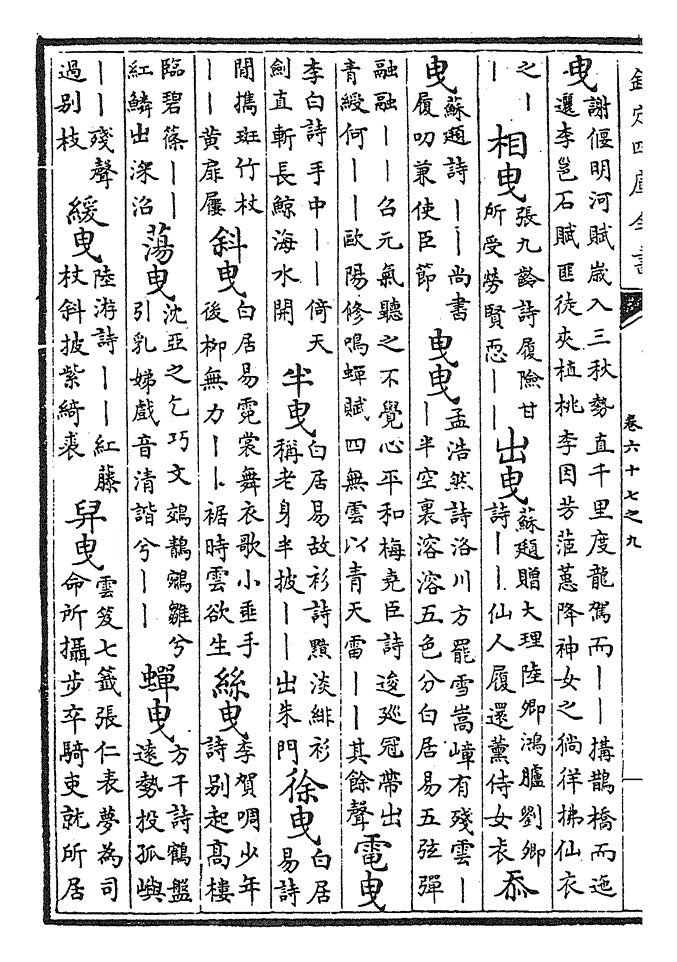 欽定四庫全書 卷六十七之九
曳 謝偃明河賦嵗入三秋勢直千里度龍駕而丨丨搆鵲橋而迤選李邕石賦匪徒夾植桃李因芳蒞蕙降神女之徜徉拂仙衣
之丨 相曳 張九齡詩履險甘所受勞賢恧丨丨 出曳 蘇頲贈大理陸卿鴻臚劉卿詩丨丨仙人履還薰侍女衣 忝
曳 蘇頲詩丨丨尚書履叨兼使臣節 曳曳 孟浩然詩洛川方罷雪嵩嶂有殘雲丨丨半空裏溶溶五色分白居易五弦彈
融融丨丨召元氣聽之不覺心平和梅堯臣詩逡巡冠帶出青綬何丨丨歐陽修鳴蟬賦四無雲以青天雷丨丨其餘聲 電曳
李白詩手中丨丨倚天劍直斬長鯨海水開 半曳 白居易故衫詩黲淡緋衫稱老身半披丨丨出朱門 徐曳 白居易詩
閒擕斑竹杖丨丨黄扉屨 斜曳 白居易霓裳舞衣歌小垂手後栁無力丨卜裾時雲欲生 絲曳 李賀啁少年詩别起髙樓
臨碧篠丨丨紅鱗出深沼 蕩曳 沈亞之乞巧文鵁鶄鸂雛兮引乳娣戲音清諧兮丨丨 蟬曳 方干詩鶴盤逺勢投孤嶼
丨丨殘聲過别枝 緩曳 陸游詩丨丨紅藤杖斜披紫綺裘 舁曳 雲笈七籤張仁表夢為司命所攝步卒騎吏就所居